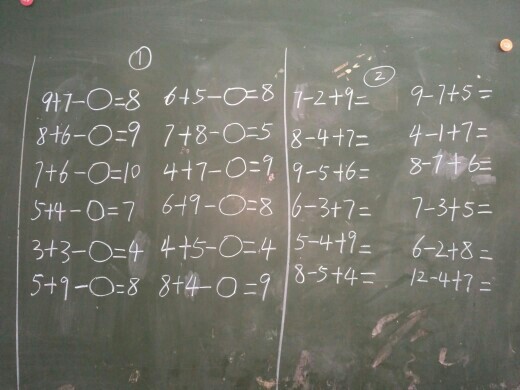 ①
9+7-○=8 6+5-○=8
8+6-○=9 7+8-○=5
7+6-○=10 4+7-○=9
5+4-○=7 6+9-○=8
3+3-○=4 4+5-○=4
5+9-○=8 8+4-○=9
②
7-2+9= 9-7+5=
8-4+7= 4-1+7=
9-5+6= 8-7+6=
6-3+7= 7-3+5=
5-4+9= 6-2+8=
8-5+4= 12-4+7=